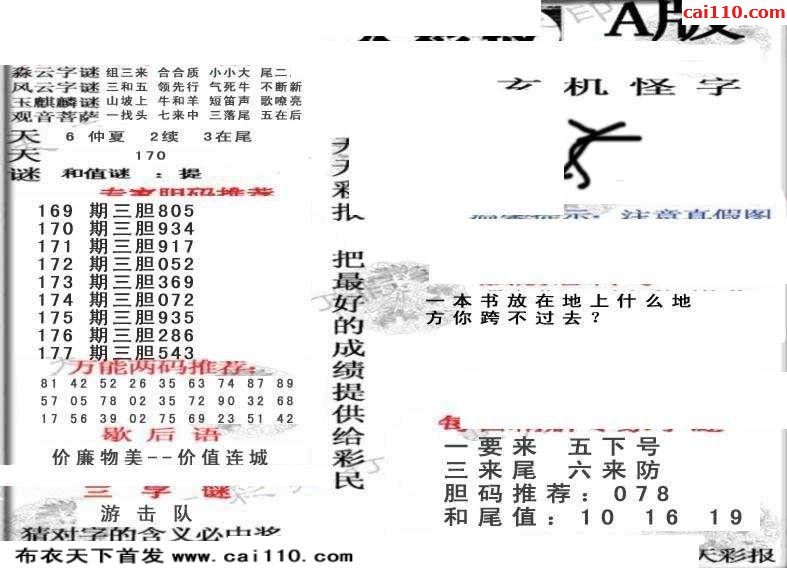 cai110.com
A版
淼云字谜 组三来 合合质 小小大 尾二.
风云字谜 三和五 领先行 气死牛 不断新
玉麒麟谜 山坡上 牛和羊 短笛声 歌嘹亮
观音菩萨 一找头 七来中 三落尾 五在后
天 6 仲夏 2续 3在尾
天 170
谜 和值谜 : 提
专家胆码推荐
169 期三胆805
170 期三胆934
171 期三胆917
172 期三胆052
173 期三胆369
174 期三胆072
175 期三胆935
176 期三胆286
177 期三胆543
万能两码推荐:
81 42 52 26 35 63 74 87 89
57 05 78 02 35 72 90 32 68
17 56 39 02 75 69 23 51 42
歇后语
价廉物美--价值连城
三字谜
游击队
猜对字的含义必中奖
天天彩报
把最好的成绩提供给彩民
玄机怪字
注意真假图
一本书放在地上什么地
方你跨不过去?
一要来 五下号
三来尾 六来防
胆码推荐: 078
和尾值: 10 16 19
布衣天下首发 www.cai110.com
天彩报